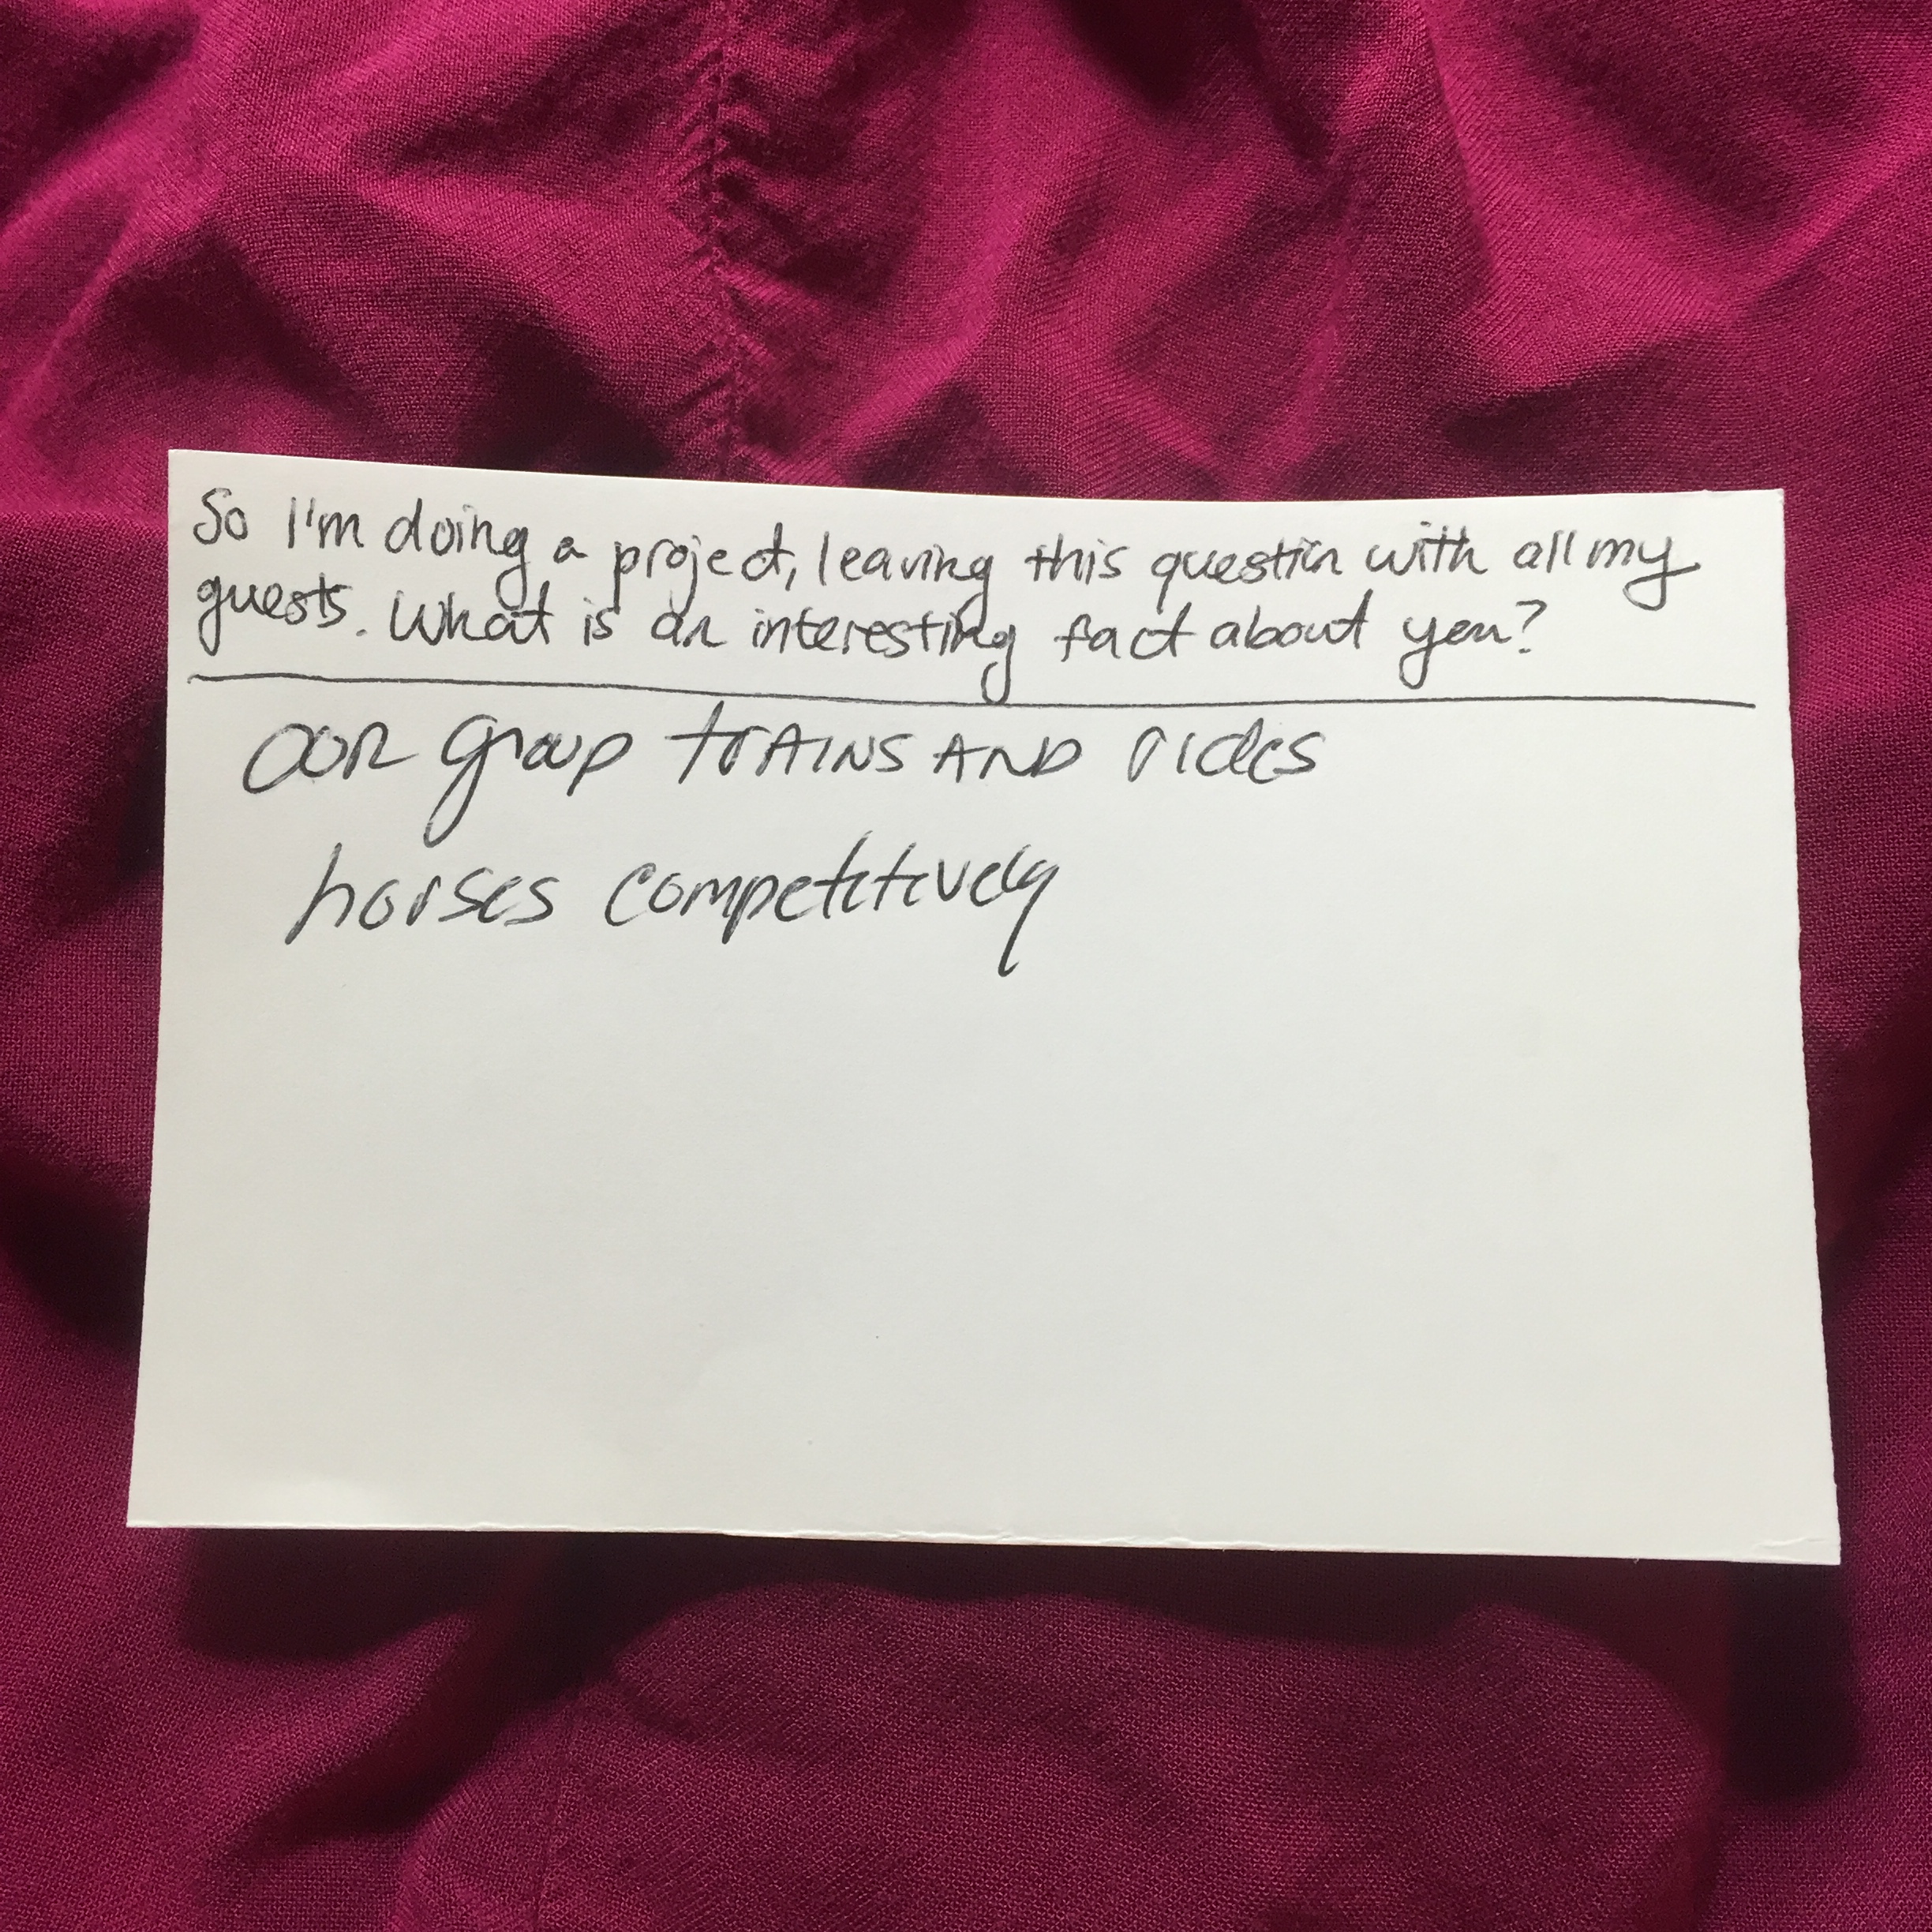 So I'm doing a project, leaving this question with all my
guests. What is an interesting fact about you?
OUR group trAINS AND rides
horses competitively